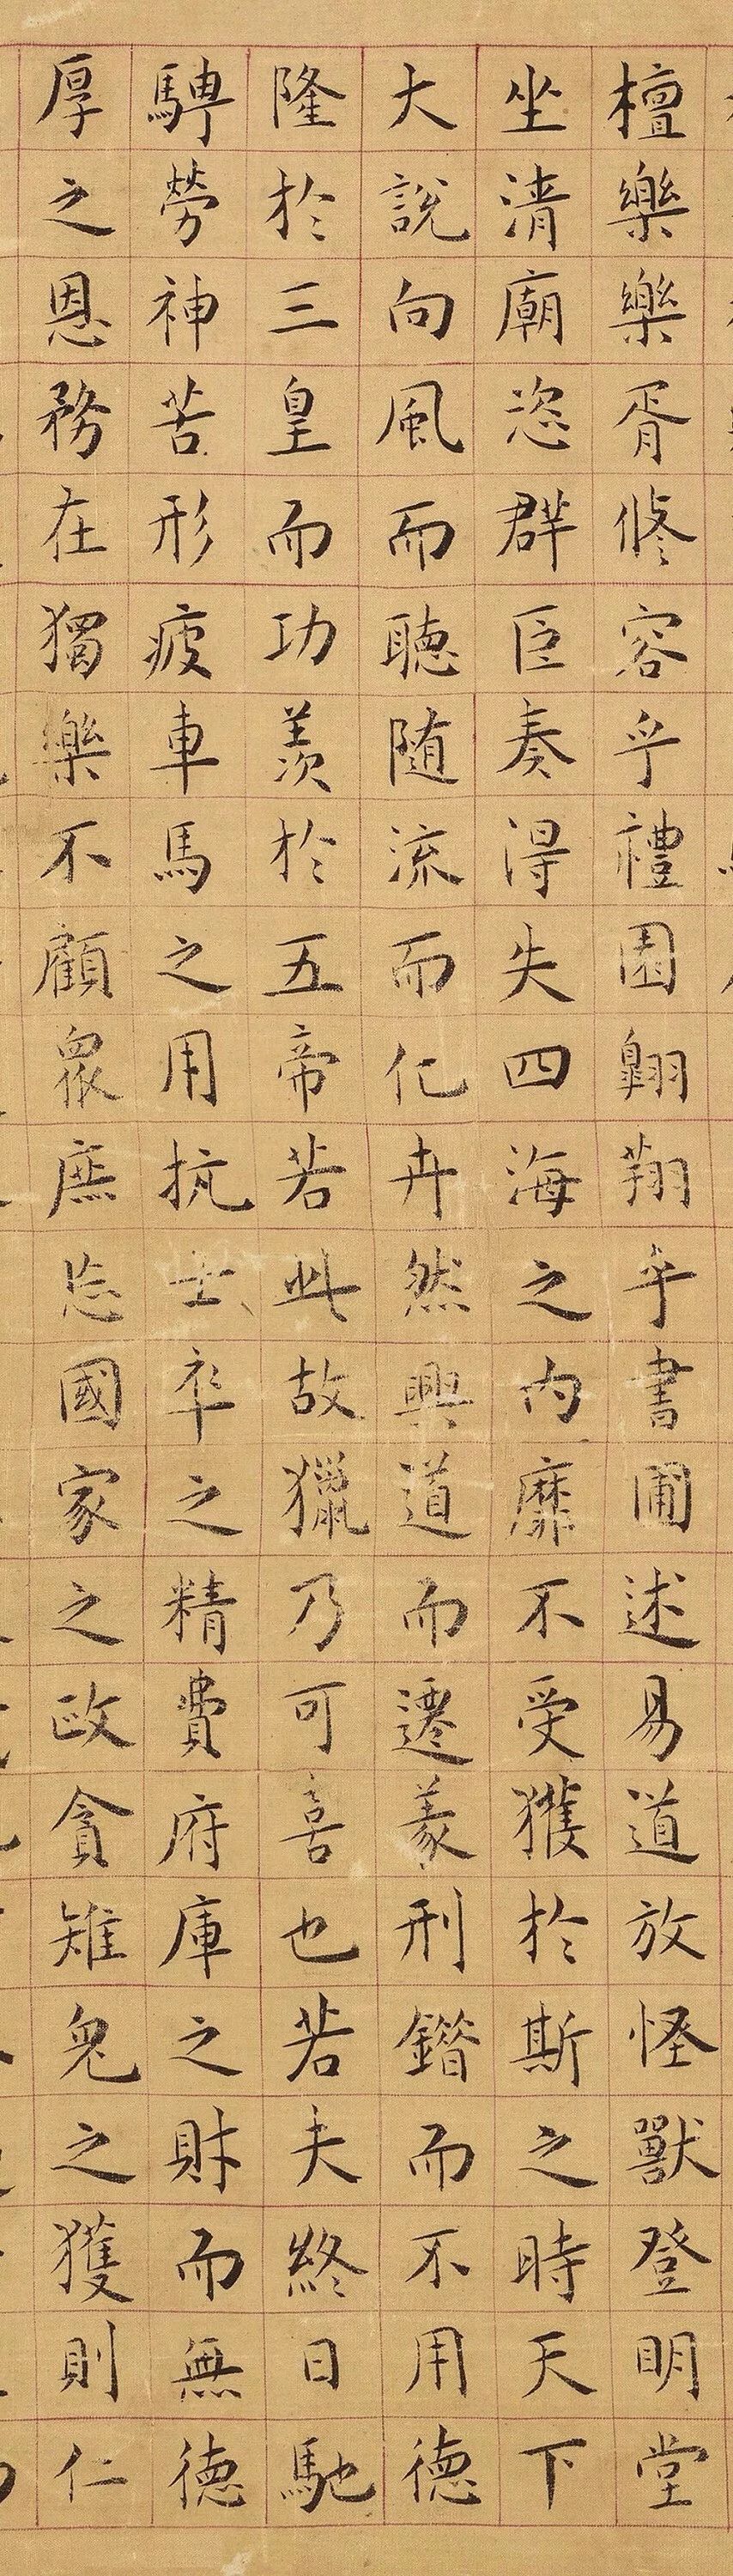 檀樂樂胥修容乎禮園翱翔乎書圃述易道放怪獸登明堂
坐清廟恣群臣奏得失四海之內靡不受獲於斯之時天下
大說向風而聽隨流而化卉然興道而遷義刑錯而不用德
隆於三皇而功羨於五帝若此故獵乃可喜也若夫終日馳
騁勞神苦形疲車馬之用抗士卒之精費府庫之財而無德
厚之恩務在獨樂不顧眾庶忘國家之政貪雉兔之獲則仁